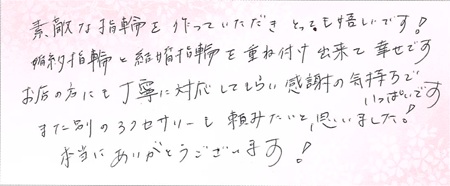 素敵な指輪を作っていただきとっても嬉しいです!
婚約指輪と結婚指輪を重ね付け出来て幸せです
お店の方にも丁寧に対応してもらい感謝の気持ちで
いっぱいです
また別のアクセサリーも頼みたいと思いました!
本当にありがとうございます!